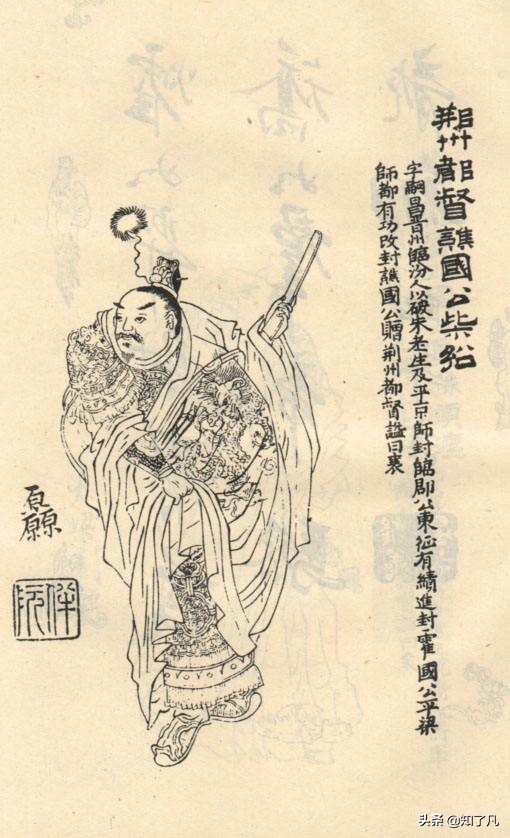 荆州都督譙國公柴紹
字嗣昌晋州臨汾人以破朱老生及平京師封臨郡公東征有績進封霍國公平梁
師都有功改封譙國公贈荆州都督諡曰襄
伴阮
头条 @知了凡